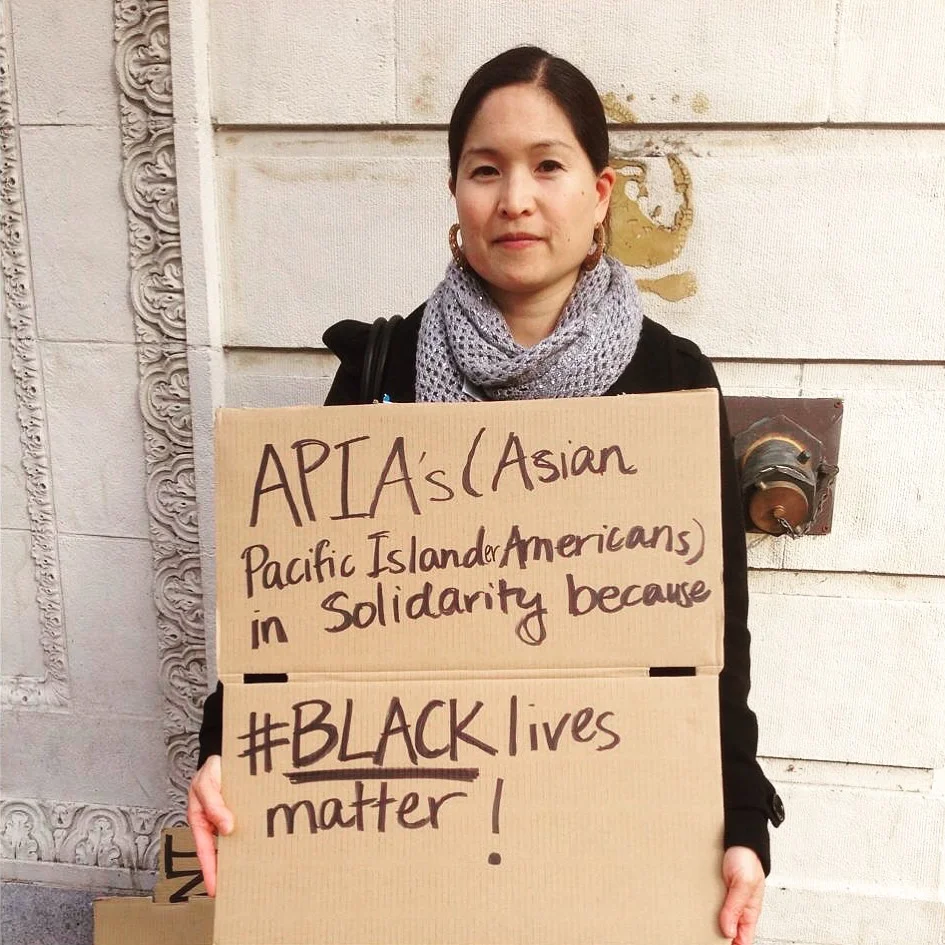 APIA's (Asian
Pacific Islander Americans)
in Solidarity because
#BLACK lives
matter!